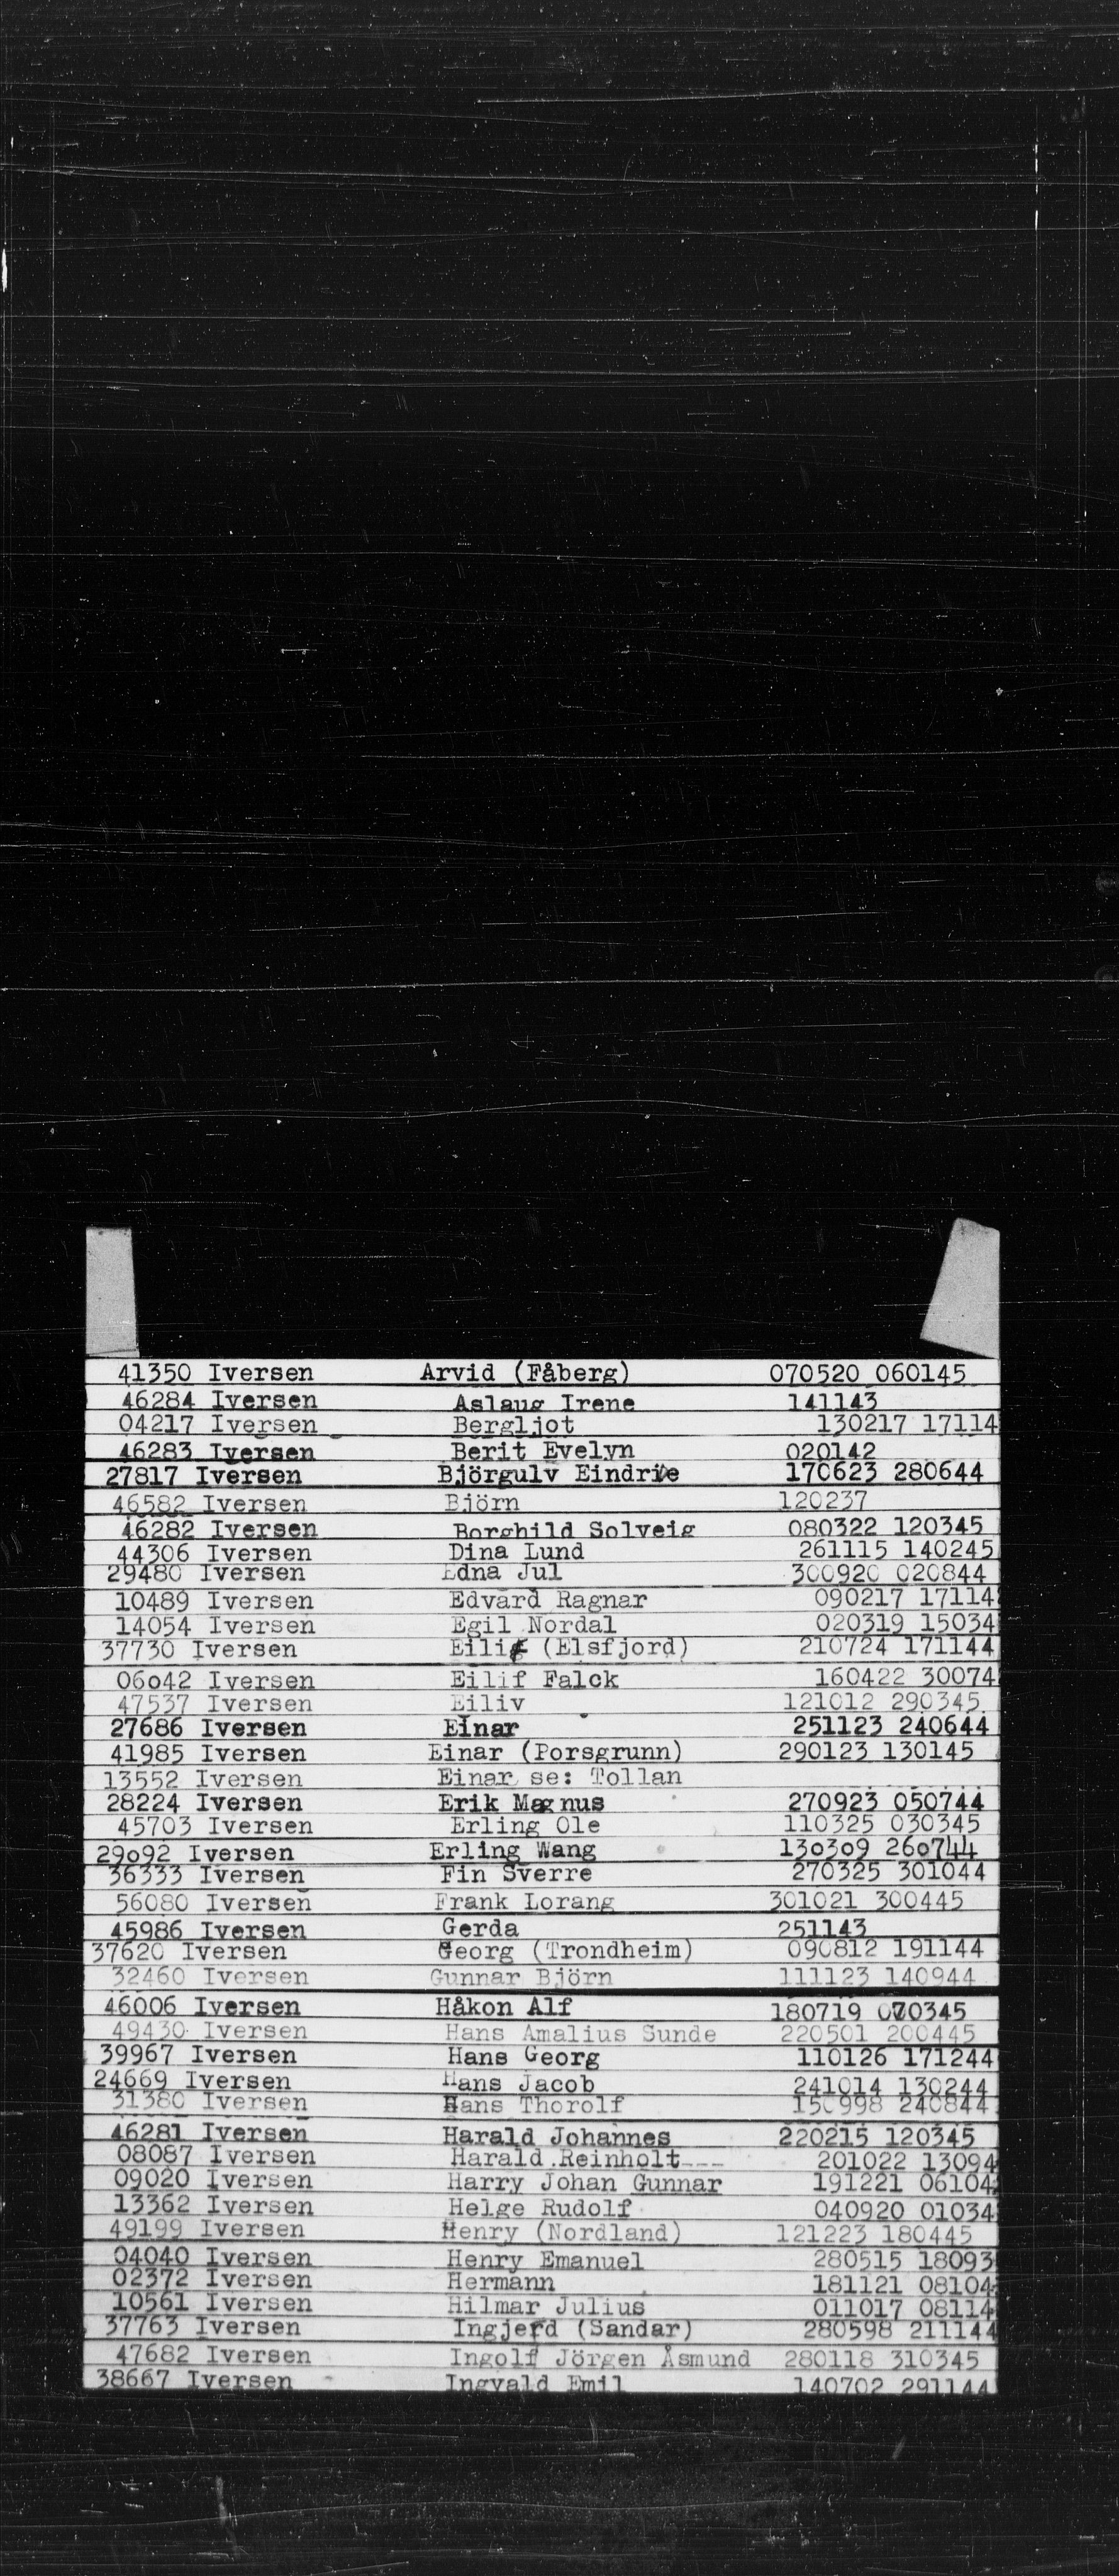 41350 Iversen Arvid (Fåberg) 070520 060145
46284 Iversen Aslaug Irene 141143
04217 Iversen Bergljot 130217 17114
46283 Iversen Berit Evelyn 020142
27817 Iversen Björgulv Eindride 170623 280644
46582 Iversen Björn 120237
46282 Iversen Borghild Solveig 080322 120345
44306 Iversen Dina Lund 261115 140245
29480 Iversen Edna Jul 300920 020844
10489 Iversen Edvard Ragnar 090217 17114
14054 Iversen Egil Nordal 020319 15034
37730 Iversen Eilif (Elsfjord) 210724 171144
06042 Iversen Eilif Falck 160422 30074
47537 Iversen Eiliv 121012 290345
27686 Iversen Einar 251123 240644
41985 Iversen Einar (Porsgrunn) 290123 130145
13552 Iversen Einar se: Tollan
28224 Iversen Erik Magnus 270923 050744
45703 Iversen Erling Ole 110325 030345
29092 Iversen Erling Wang 130309 260744
36333 Iversen Fin Sverre 270325 301044
56080 Iversen Frank Lorang 301021 300445
45986 Iversen Gerda 251143
37620 Iversen Georg (Trondheim) 090812 191144
32460 Iversen Gunnar Björn 111123 140944
46006 Iversen Håkon Alf 180719 070345
49430 Iversen Hans Amalius Sunde 220501 200445
39967 Iversen Hans Georg 110126 171244
24669 Iversen Hans Jacob 241014 130244
31380 Iversen Hans Thorolf 150998 240844
46281 Iversen Harald Johannes 220215 120345
08087 Iversen Harald Reinholt--- 201022 13094
09020 Iversen Harry Johan Gunnar 191221 06104
13362 Iversen Helge Rudolf 040920 01034
49199 Iversen Henry (Nordland) 121223 180445
04040 Iversen Henry Emanuel 280515 18093
02372 Iversen Hermann 181121 08104
10561 Iversen Hilmar Julius 011017 08114
37763 Iversen Ingjerd (Sandar) 280598 211144
47682 Iversen Ingolf Jörgen Åsmund 280118 310345
38667 Iversen Ingvald Emil 140702 291144